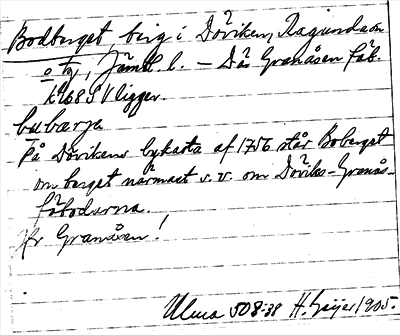 Bodberget, berg i Döviken, Ragunda sn
o tg, Jämtl. l. – Där Granåsen fäb.
k. 168 SV ligger.
bubärja
På Dövikens bykarta af 1756 står Boberget
om berget närmast s.v. om Döviks-Granås-
fäbodarna.
fr Granåsen!
Ulma 508:38 H. Geijer 1905.